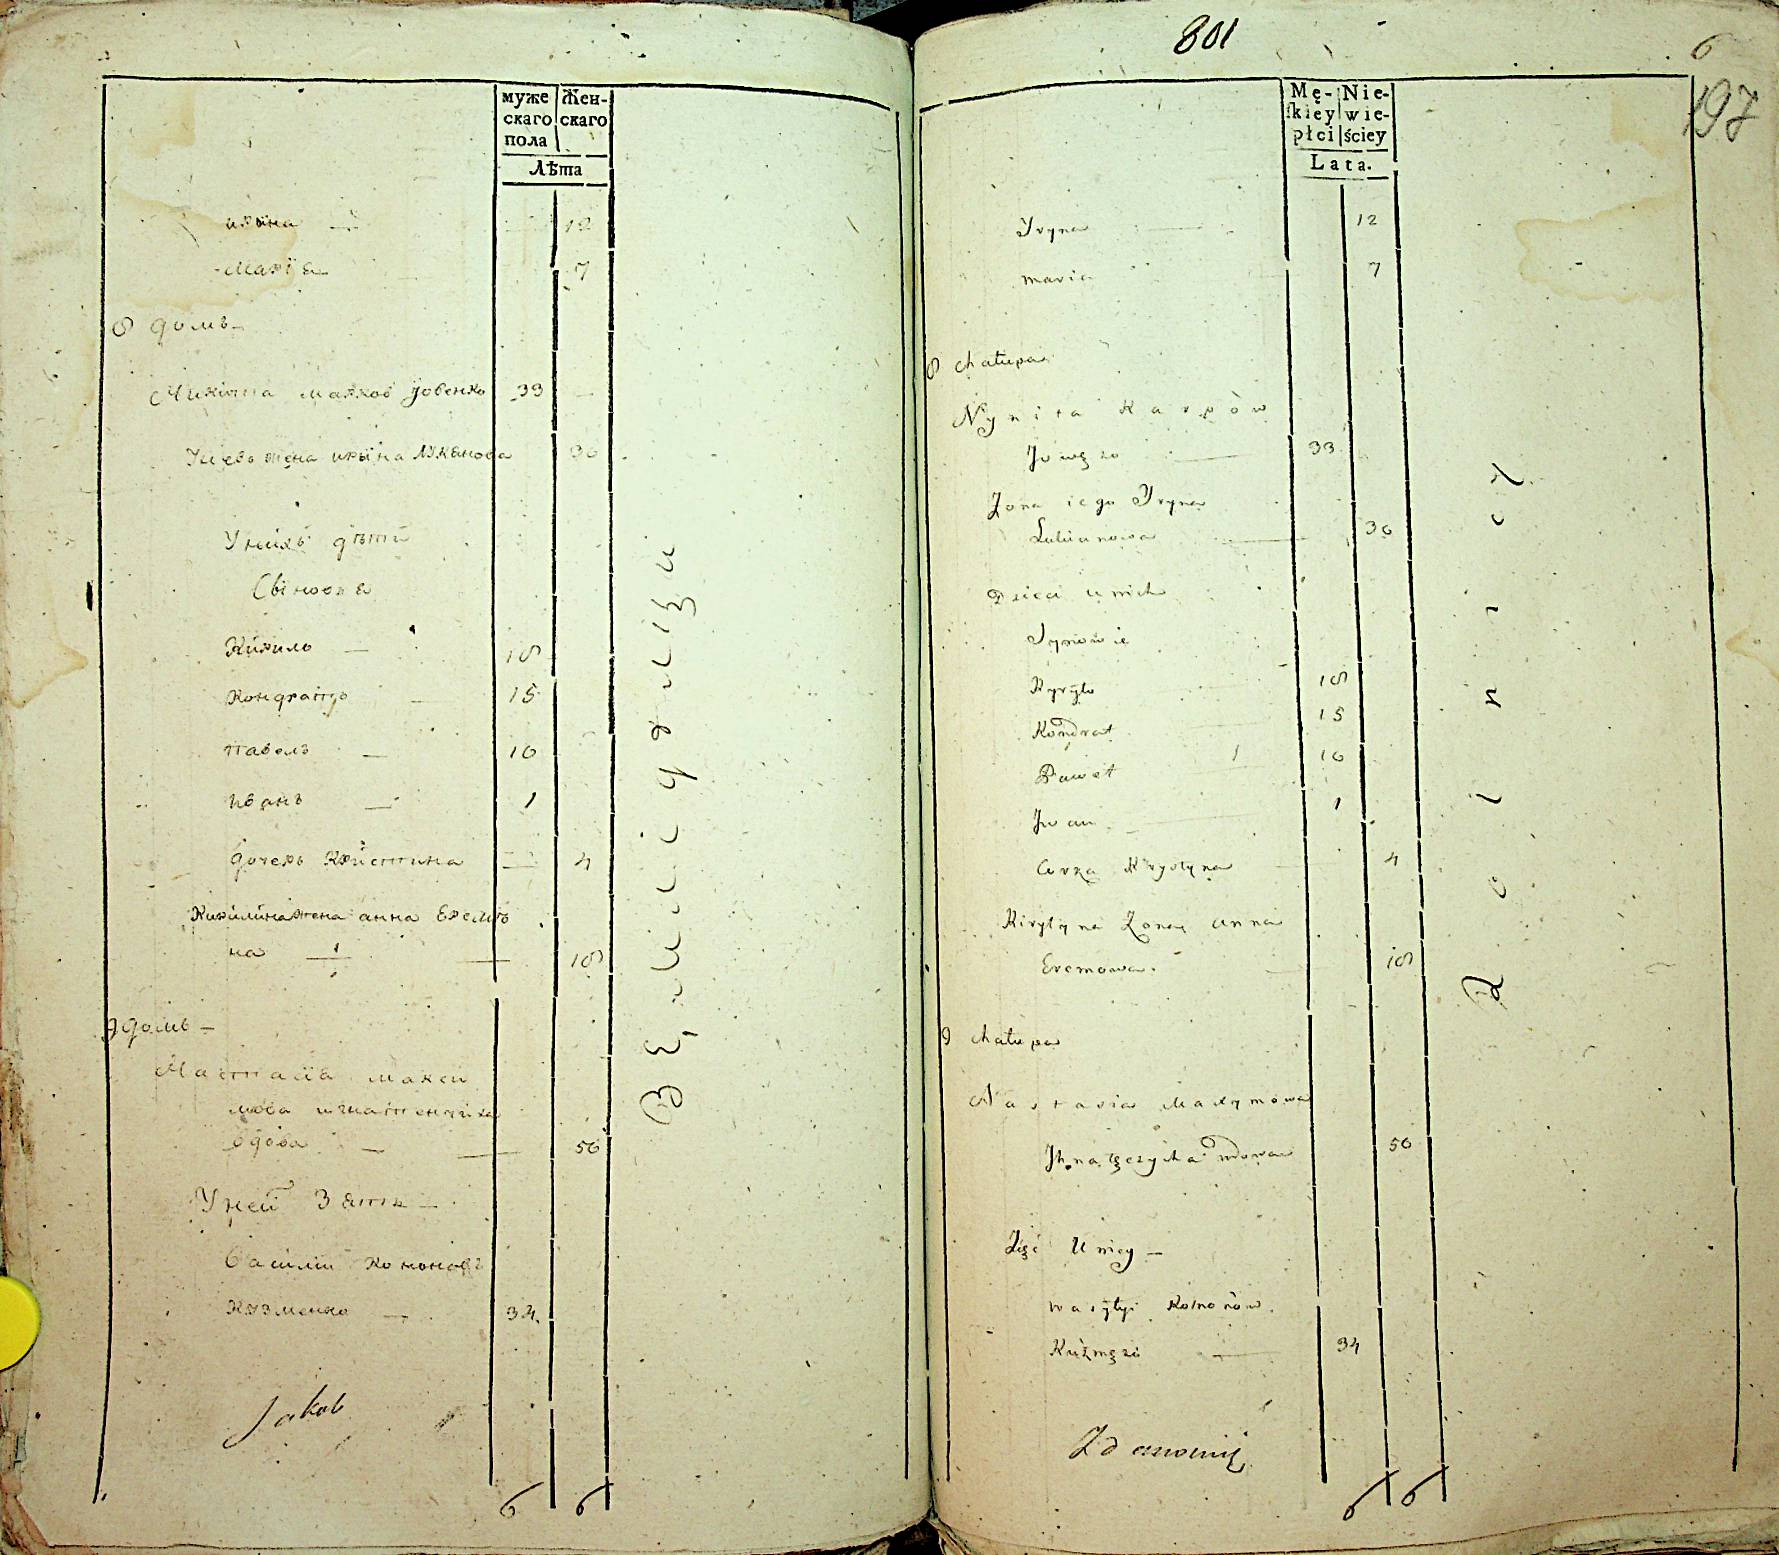 муже
скаго
пола
Жен-
скаго
Лѣта
ирына — 12
Марїя 7
8 домъ —
Микита карповъ Ювенко 33
Уиево жена ирына Лукянова 30
Унихъ дѣти
Сынове
Кирило — 18
Кондратъ 15
павелъ — 10
иванъ — 1
дочерь Кристина — 4
Кирилина жена анна Еремѣе
на — 18
9 домъ —
Настасія макси
мова игнатенчиха
вдова — 56
Уней Зять —
Василий Кононовъ
Кузменко — 34
Jakob
6 6
801
6
197
Mę-
skiey
płci
Nie-
wie-
ściey
Lata.
Iryna 12
maria 7
8 chałupa
Nykita Karpów
Jowęko 33
Zona iego Iryna
Lukianowa 30
Dzieci unich
Synowie
Kyryło 18
Kondrat 15
Paweł 10
Iwan 1
Corka Krystyna 4
Kiryłyna Zona anna
Eremowa 18
9 chałupa
Nastasia Maxymowa
Ihnatęczycha wdowa 56
Zięć Uniey —
wasyłyi Kononów
Kuźmęko 34
Rolnicy
6 6